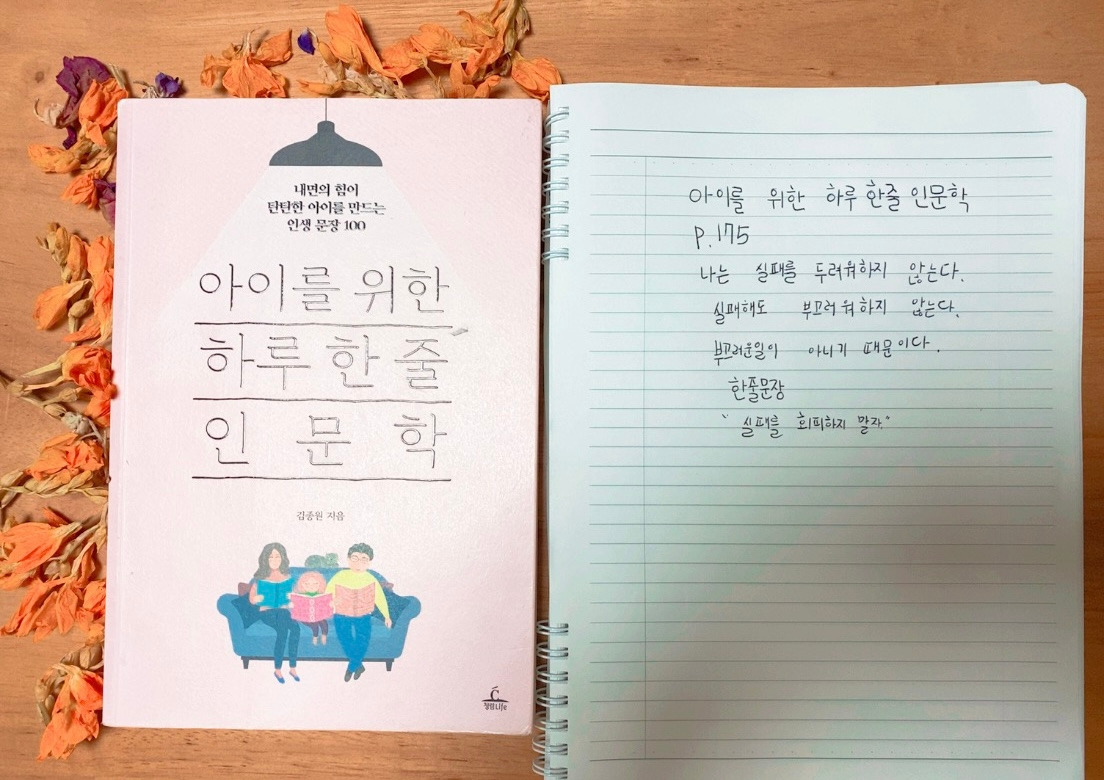 내면의 힘이
탄탄한 아이를 만드는
인생 문장 100
아이를 위한
하루 한 줄
인 문 학
김종원 지음
청림Life
아이를 위한 하루 한줄 인문학
P.175
나는 실패를 두려워하지 않는다.
실패해도 부끄러워하지 않는다.
부끄러운일이 아니기 때문이다.
한줄문장
"실패를 회피하지 말자."